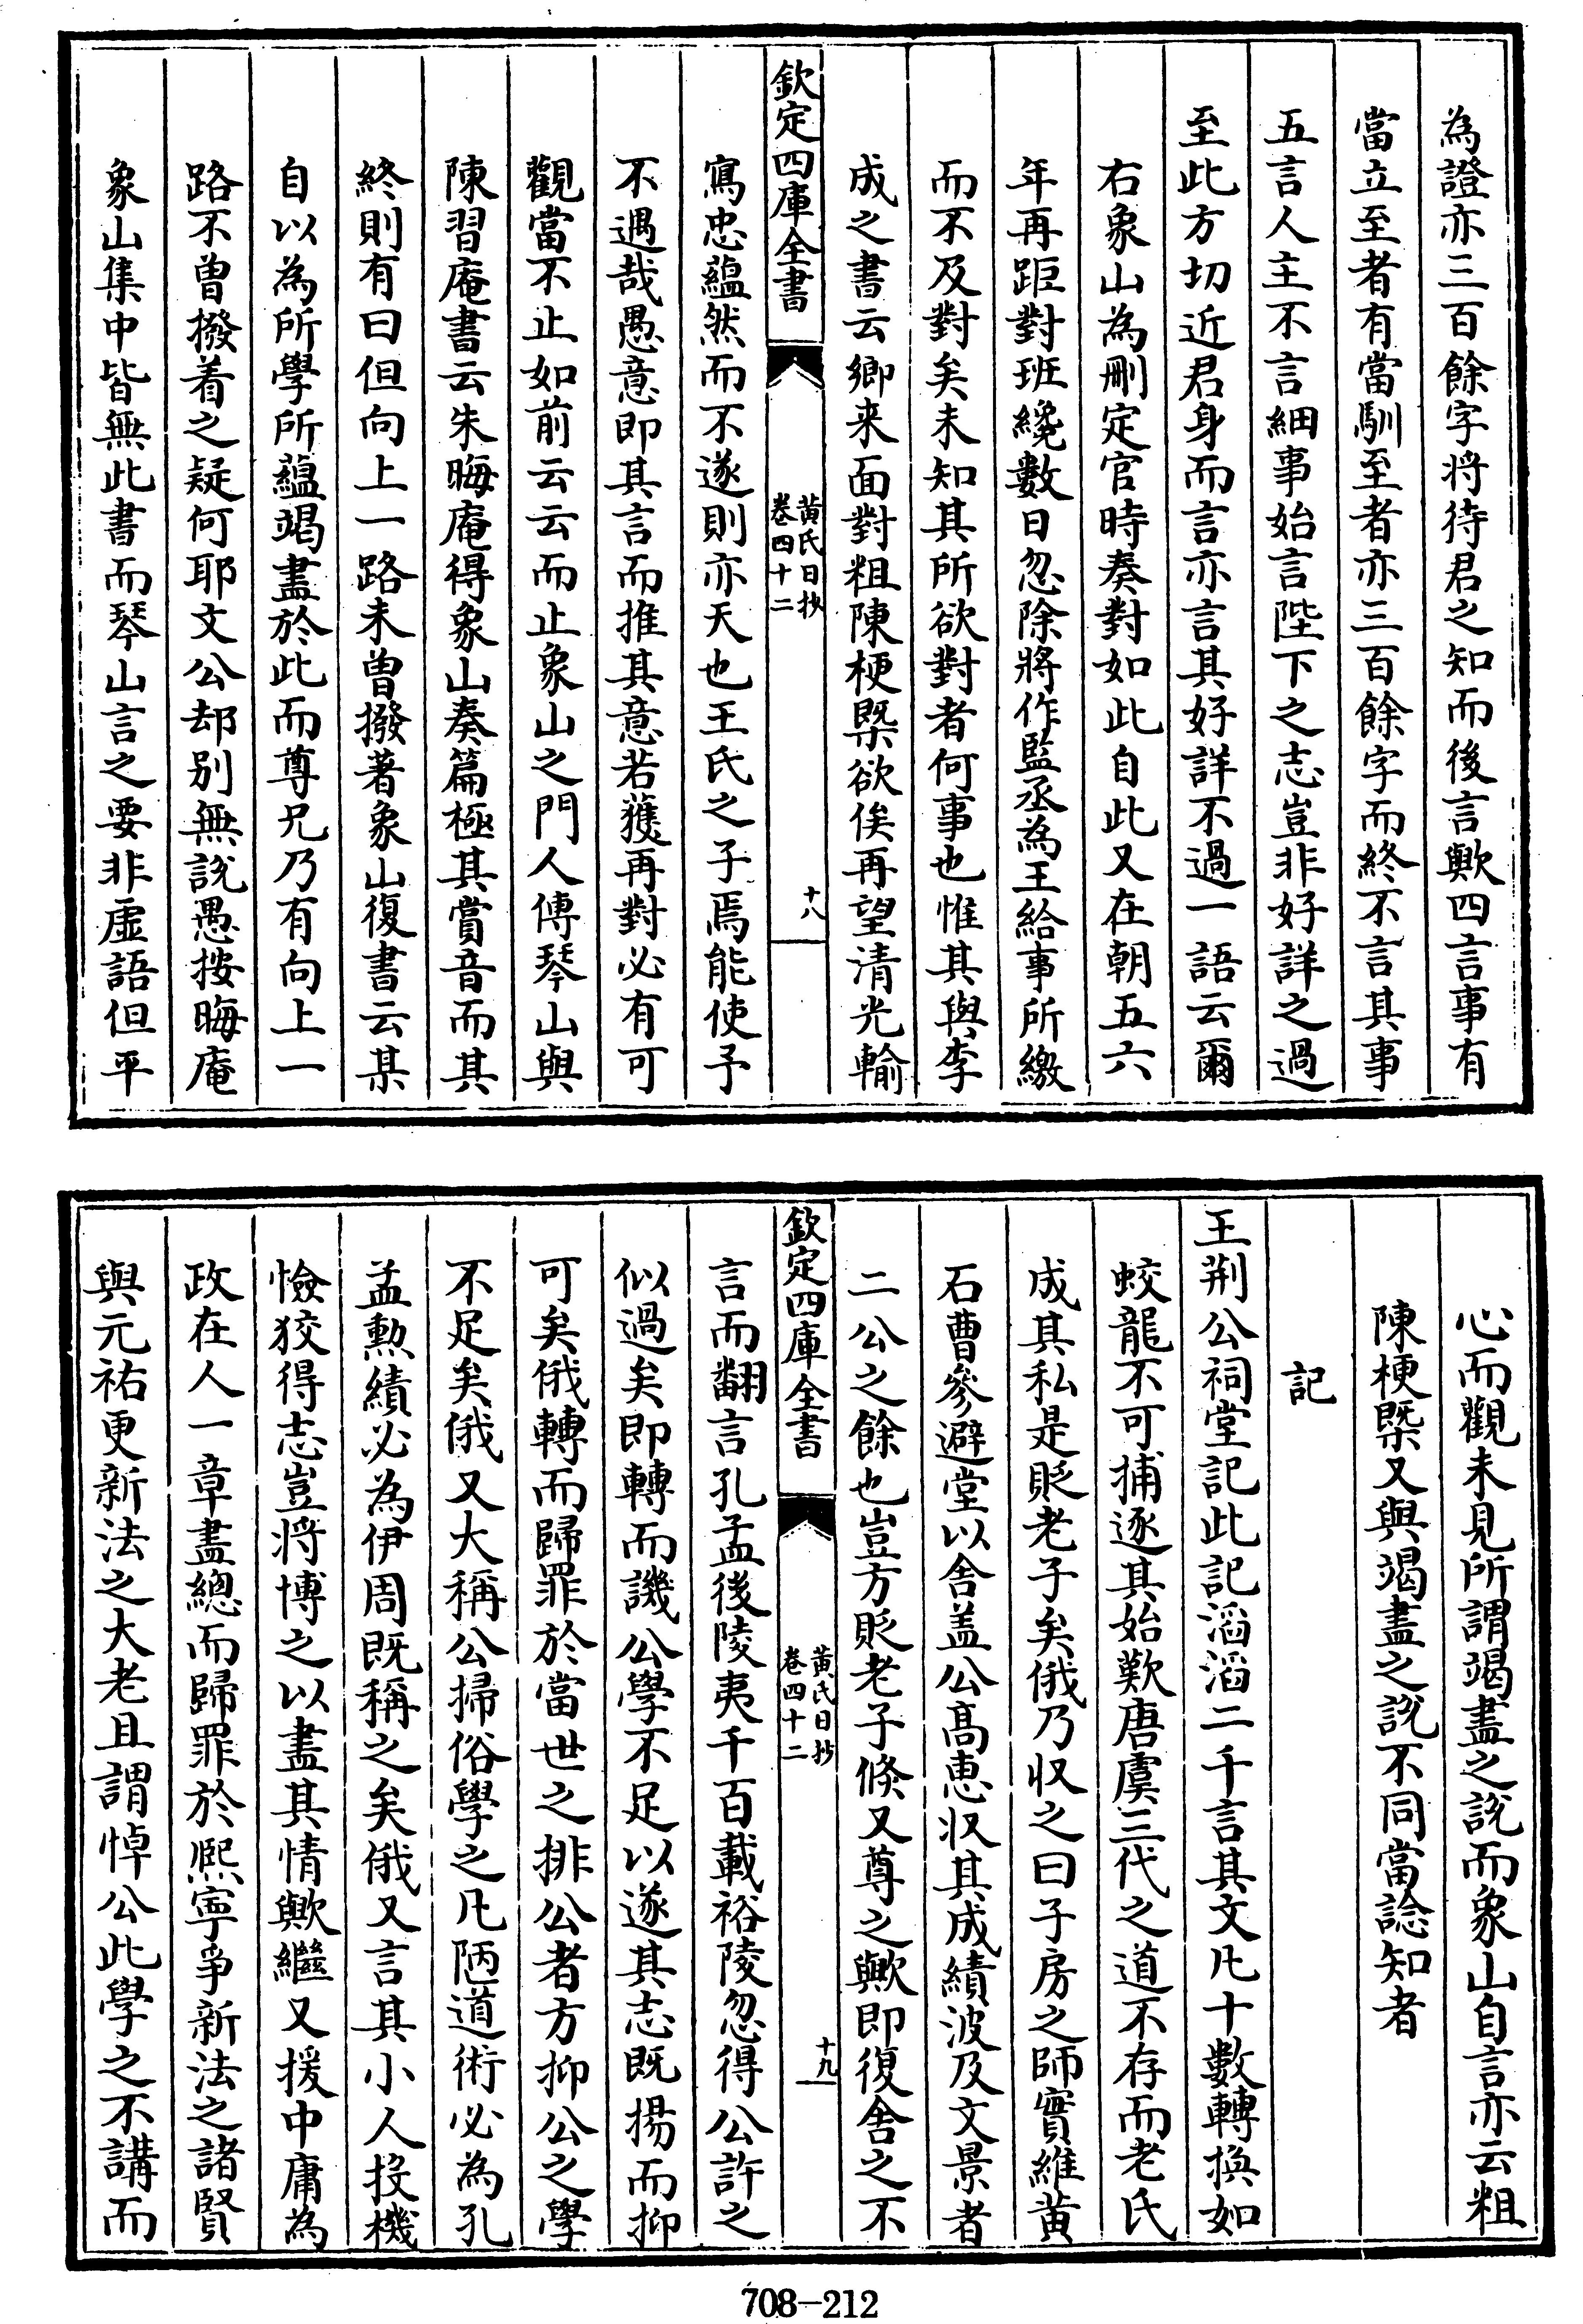 為證亦三百餘字将待君之知而後言歟四言事有
當立至者有當馴至者亦三百餘字而終不言其事
五言人主不言細事始言陛下之志豈非好詳之過
至此方切近君身而言亦言其好詳不過一語云爾
右象山為刪定官時奏對如此自此又在朝五六
年再距對班纔數日忽除將作監丞為王給事所繳
而不及對矣未知其所欲對者何事也惟其與李
成之書云鄉来面對粗陳梗槩欲俟再望清光輸
欽定四庫全書
黃氏日抄
卷四十二
十八
寫忠蘊然而不遂則亦天也王氏之子焉能使予
不遇哉愚意即其言而推其意若獲再對必有可
觀當不止如前云云而止象山之門人傅琴山與
陳習庵書云朱晦庵得象山奏篇極其賞音而其
終則有曰但向上一路未曾撥著象山復書云某
自以為所學所蘊竭盡於此而尊兄乃有向上一
路不曾撥着之疑何耶文公却別無說愚按晦庵
象山集中皆無此書而琴山言之要非虛語但平
心而觀未見所謂竭盡之說而象山自言亦云粗
陳梗槩又與竭盡之說不同當諗知者
記
王荆公祠堂記此記滔滔二千言其文凡十數轉換如
蛟龍不可捕逐其始歎唐虞三代之道不存而老氏
成其私是貶老子矣俄乃収之曰子房之師實維黃
石曹參避堂以舍盖公髙惠収其成績波及文景者
二公之餘也豈方貶老子倐又尊之歟即復舍之不
欽定四庫全書
黃氏日抄
卷四十二
十九
言而翻言孔孟後陵夷千百載裕陵忽得公許之
似過矣即轉而譏公學不足以遂其志既揚而抑
可矣俄轉而歸罪於當世之排公者方抑公之學
不足矣俄又大稱公掃俗學之凡陋道術必為孔
孟勲績必為伊周既稱之矣俄又言其小人投機
憸狡得志豈将博之以盡其情歟繼又援中庸為
政在人一章盡總而歸罪於熈寧爭新法之諸賢
與元祐更新法之大老且謂悼公此學之不講而
708-212